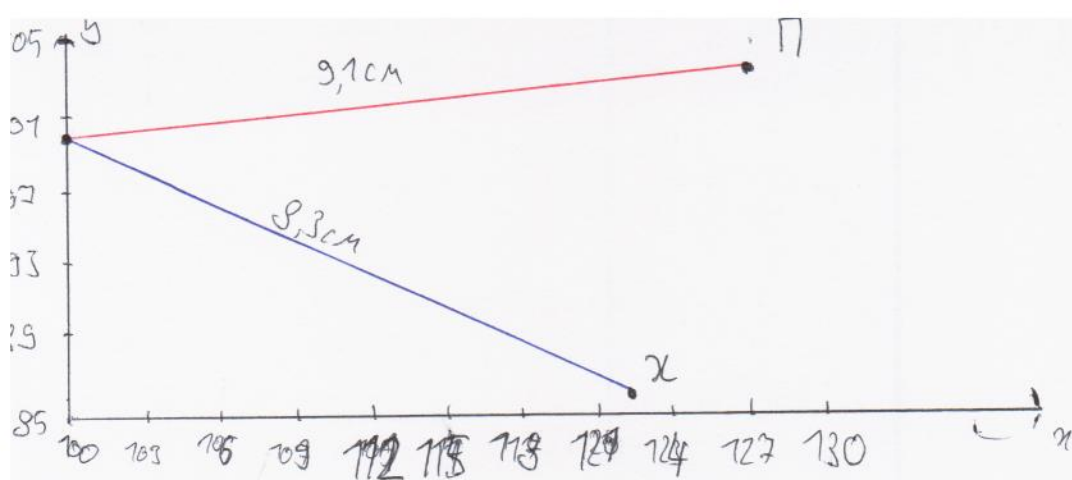 05 y
П
9,1см
01
97
8,3см
93
89
х
85
100 103 106 109 112 115 118 121 124 127 130
x